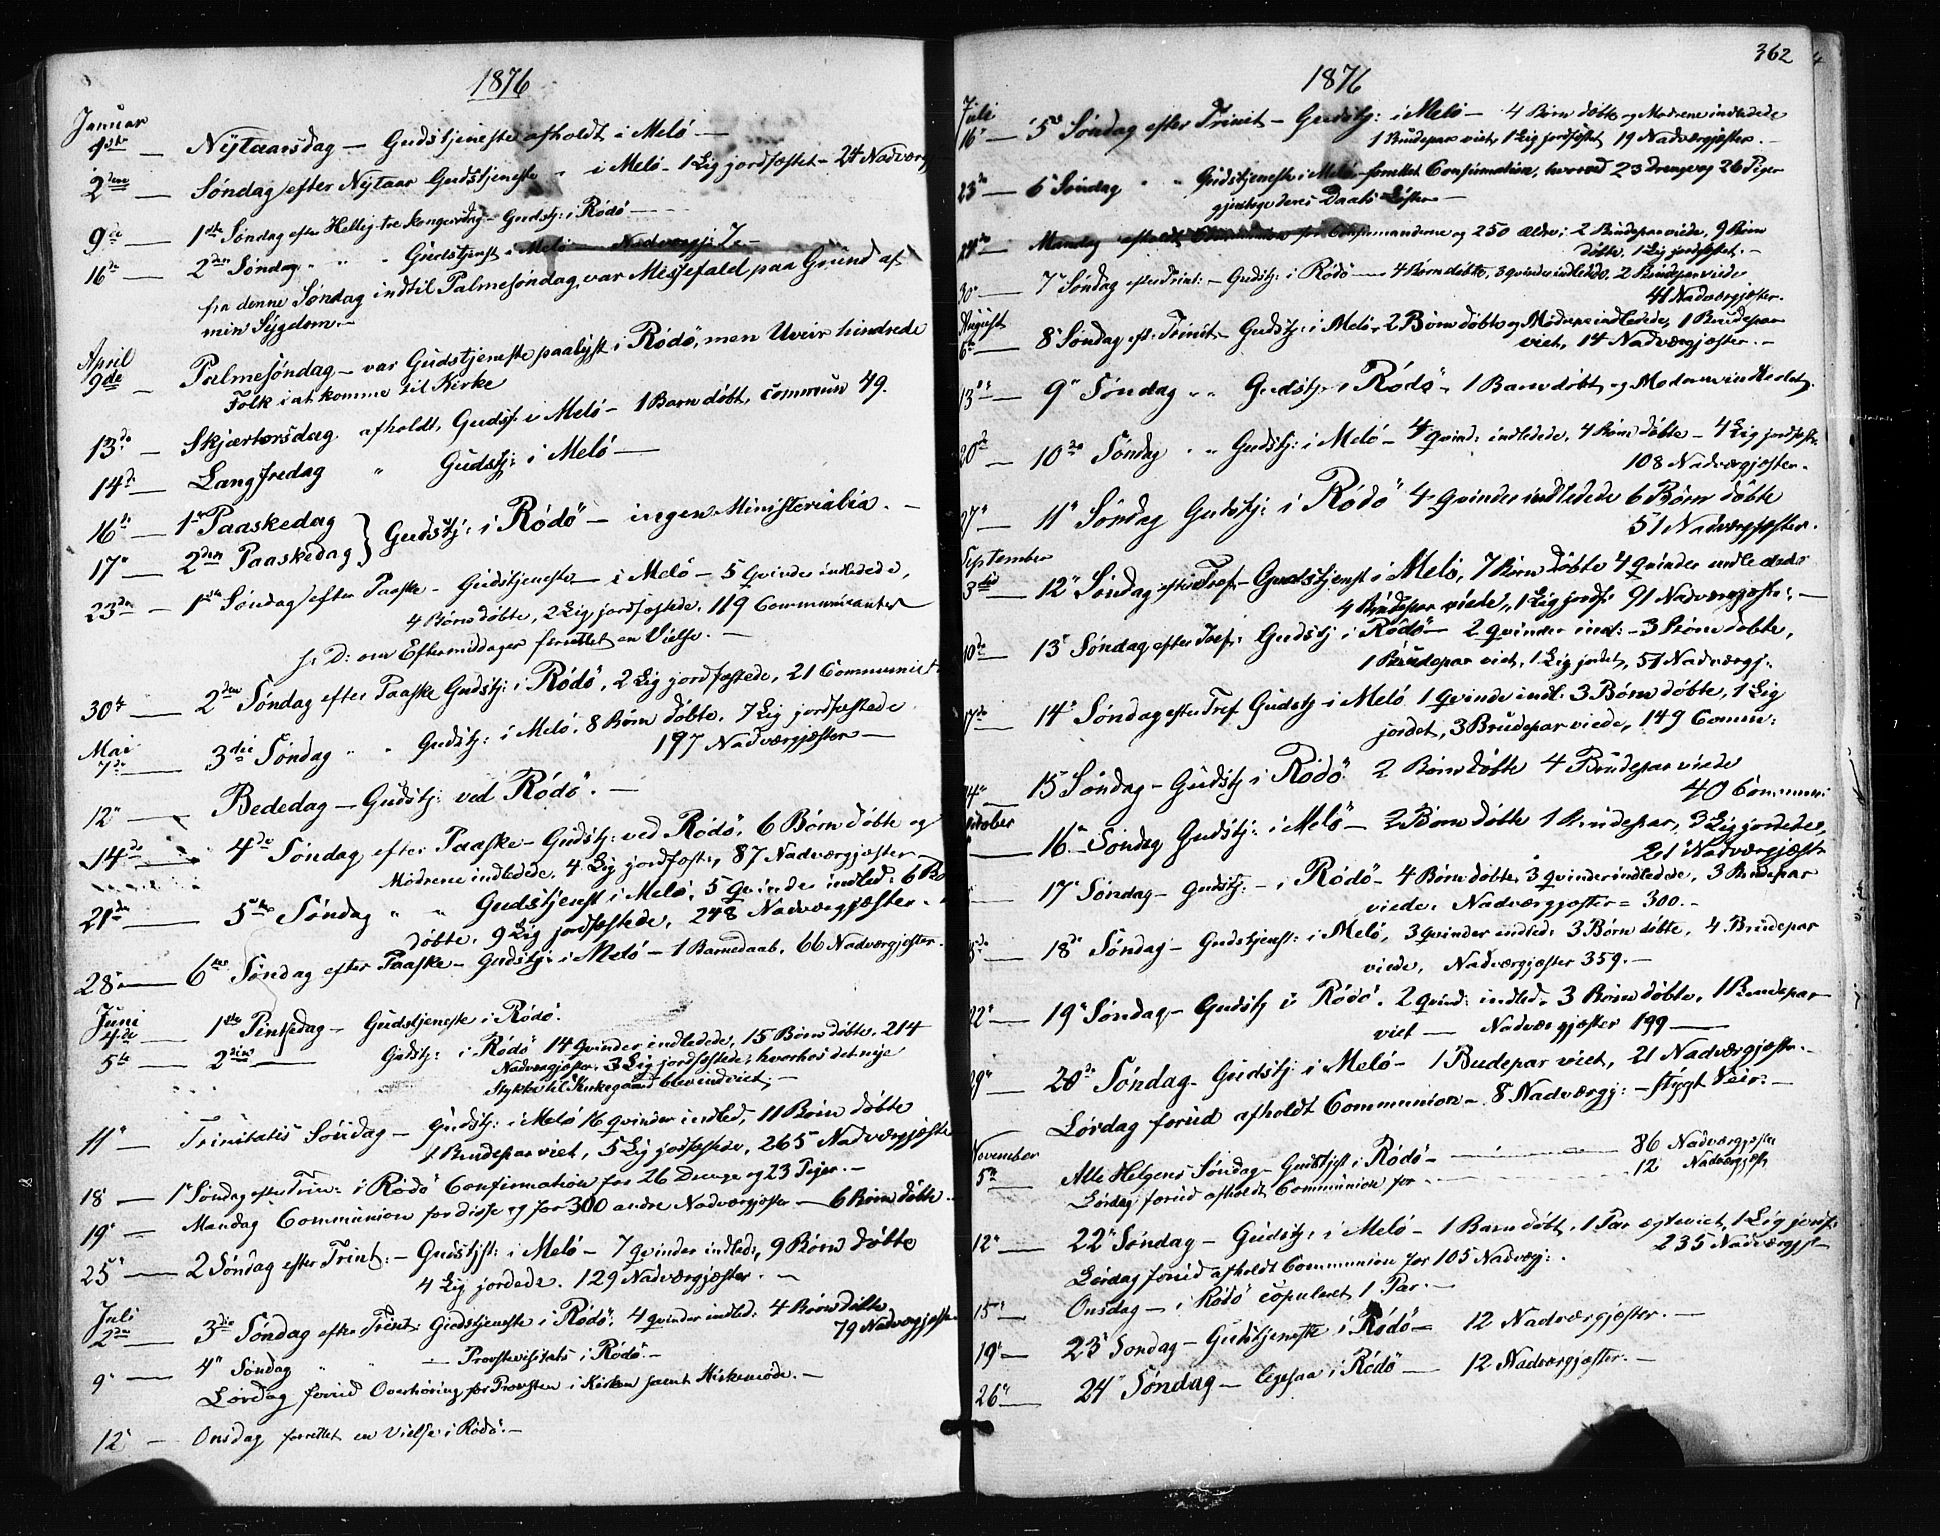 1876
Januar
1ste — Nytaarsdag — Gudstjeneste afholdt i Melö —
2den — Söndag efter Nytaar Gudstjeneste i Melö - 1 Lig jordfæstet - 24 Nadverg
9de — 1ste Söndag efter Hellig-tre kongersdag - Gudstj: i Rödö —
16de — 2den Söndag " " Gudstjenst i Melö — Nadvergj: 7 —
fra denne Söndag indtil Palmesöndag var Messefald paa Grund af
min Sygdom. —
April
9de — Palmesöndag — var Gudstjeneste paalyst i Rödö, men Uveir hindrede
Folk i at komme til Kirke
13de — Skjærtorsdag afholdt Gudstj: i Melö - 1 Barn döbt, commun 49.
14de — Langfredag " Gudstj: i Melö —
16de — 1ste Paaskedag } Gudstj: i Rödö — ingen Ministerialia. —
17" — 2den Paaskedag
23de — 1ste Söndag efter Paaske - Gudstjeneste i Melö - 5 Qvinder indledede,
4 Börn döbte, 2 Lig jordfæstede, 119 Communicanter
s: D: om Eftermiddagen forrettet en Vielse. —
30te — 2den Söndag efter Paaske Gudstj: i Rödö, 2 Lig jordfæstede, 21 Communict
Mai
7de — 3die Söndag " " Gudstj: i Melö. 8 Börn döbte. 7 Lig jordfæstede
197 Nadværgjæster —
12" — Bededag — Gudstj: ved Rödö. —
14de — 4de Söndag efter Paaske - Gudstj: ved Rödö. 6 Börn döbte og
Mödrene indledede, 4 Lig jordfæst:, 87 Nadværgjæster
21de — 5te Söndag " " Gudstjenst i Melö. 5 Qvinder indled: 6 Bö
döbte. 9 Lig jordfæstede, 248 Nadværgjæster.
28" — 6te Söndag efter Paaske - Gudstj: i Melö - 1 Barnedaab. 66 Nadværgjæster.
Juni
4de 1ste Pintsedag — Gudstjeneste i Rödö.
5te 2den — Gudstj: i Rödö 14 Qvinder indledede, 15 Börn döbte. 214
Nadværgjæster. 3 Lig jordfæstede, hvorhos det nye
Stykke til Kirkegaard blev indviet; —
11" — Trinitatis Söndag — Gudstj: i Melö 16 Qvinder indled, 11 Börn döbte
1 Brudepar viet, 5 Lig jordfæstede, 265 Nadværgjæste
18 — 1" Söndag efter Trin: i Rödö Confirmation for 26 Drenge og 23 Piger. —
19" — Mandag Communion for disse og for 300 andre Nadværgjæster — 6 Börn döbte
25" — 2 Söndag efter Trinit: — Gudstjst: i Melö - 7 Qvinder indled:, 9 Börn döbte
4 Lig jordede. 129 Nadværgjæster. —
Juli
2den — 3die Söndag efter Trinit: Gudstjeneste i Rödö: 4 Qvinder indled: 4 Börn döbte
79 Nadværgjæste
9" — 4" Söndag " " — Provstevisitats i Rödö. —
Lördag forud Overhöring for Provsten i Kirken samt Kirkemöde. —
12" — Onsdag forrettet en Vielse i Rödö. —
362
1876
Juli
16" — 5" Söndag efter Trinit — Gudstj: i Melö - 4 Börn döbte og Mødrene indledede
1 Brudepar viet, 1 Lig jordfæstet 19 Nadværgjæster. —
23de — 6" Söndag " " Gudstjeneste i Melö - forrettet Confirmation, hvorved 23 Drenge og 26 Piger
gjentoge deres Daabs Löfter —
24de — Mandag afholdt Communion for Confirmanderne og 250 Ældre; 2 Brudepar viede, 9 Börn
döbte, 1 Lig jordfæstet. —
30" — 7" Söndag efter Trinit: - Gudstj: i Rödö — 4 Börn döbte, 3 qvinder indledede, 2 Brudepar viede
41 Nadværgjæster.
August
6te — 8" Söndag eft. Trinit - Gudstj: i Melö - 2 Börn döbte og Mödrene indledede, 1 Brudepar
viet, 14 Nadværgjæster. —
13de — 9" Söndag " " Gudstj: i Rödö - 1 Barn döbt og Moderen indledet.
20de — 10de Söndag " " Gudstj: i Melö - 4 Qvind: indledede, 4 Börn döbte - 4 Lig jordfæst:
108 Nadværgjæster.
27" — 11" Söndag Gudstj: i Rödö 4 Qvinder indledede 6 Börn döbte
51 Nadværgjæster.
September
3die — 12" Söndag efter Tref. - Gudstjenst i Melö, 7 Börn döbte 4 qvinder indledede
4 Brudepar viede, 1 Lig jordf: 91 Nadværgjæste: —
10de — 13" Söndag efter Tref: Gudstj i Rödö - 2 Qvinder ind: - 3 Börn döbte,
1 Brudepar viet, 1 Lig jordet, 51 Nadværgj:
17de — 14" Söndag efter Tref. Gudstj i Melö 1 Qvinde indl: 3 Börn döbte, 1 Lig
jordet, 3 Brudepar viede, 149 Comm:
24" — 15 Söndag — Gudstj i Rödö: 2 Börn döbte 4 Brudepar viede
40 Communi:
October
— 16" Söndag Gudstj: i Melö — 2 Börn döbte 1 Brudepar, 3 Lig jordede,
21 Nadværgjæst:
— 17" Söndag — Gudstj: — i Rödö - 4 Börn döbte, 3 qvinder indledede, 3 Brudepar
viede. Nadværgjæster = 300. —
18de Söndag — Gudstjenst: i Melö, 3 qvinder indled: 3 Börn döbte, 4 Brudepar
viede, Nadværgjæster 359. —
22" — 19" Söndag — Gudstj i Rödö. 2 Qvind: indled. 3 Börn döbte, 1 Brudepar
viet — Nadværgjæster 199 —
29" — 20de Söndag - Gudstj: i Melö - 1 Budepar viet, 21 Nadværgjæstr. —
Lördag forud afholdt Communion - 8 Nadværgj: - stygt Veir. —
November
5te — Alle Helgens Söndag Gudstjst i Rödö - — 86 Nadværgjæster
Lördag forud afholdt Communion for — 12 Nadværgjæst
12" — 22" Söndag — Gudstj: i Melö - 1 Barn döbt, 1 Par ægteviet, 1 Lig jordf:
235 Nadværgjst
Lördag forud afholdt Communion for 105 Nadværg: .
15" — Onsdag — i Rödö copuleret 1 Par. —
19" — 23" Söndag — Gudstjeneste i Rödö — 12 Nadværgjæster. —
26" — 24" Söndag — ligesaa i Rödö — 12 Nadværgjæster. —